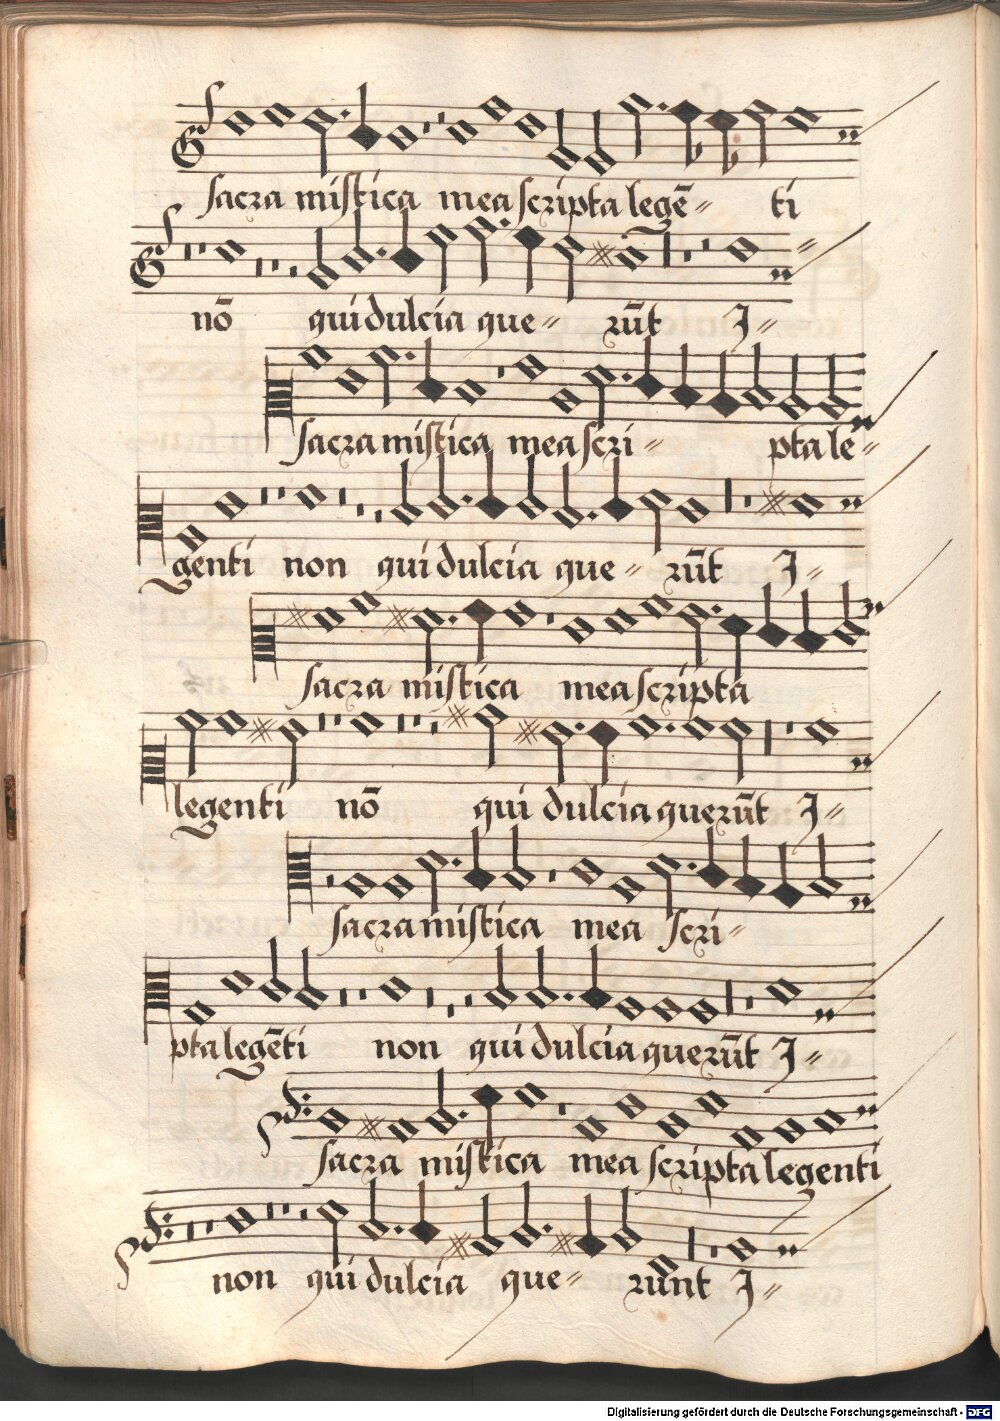 sacra mistica mea scripta legē= ti
nō qui dulcia que= rūt J=
sacra mistica mea scri= pta le=
genti non qui dulcia que= rūt J=
sacra mistica mea scripta
legenti nō qui dulcia querūt J=
sacra mistica mea scri=
pta legēti non qui dulcia querūt J=
sacra mistica mea scripta legenti
non qui dulcia que= runt J=
Digitalisierung gefördert durch die Deutsche Forschungsgemeinschaft - DFG